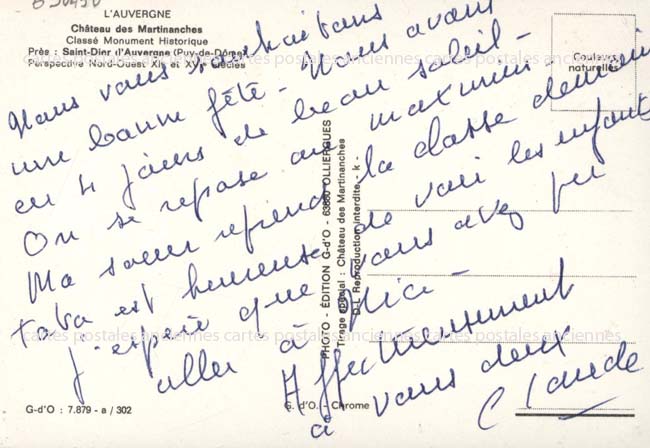 L'AUVERGNE
Château des Martinanches
Classé Monument Historique
Près : Saint-Dier d'Auvergne (Puy-de-Dôme)
Perspective Nord-Ouest XIe et XVe siècles
Couleurs
naturelles
Nous vous souhaitons
une bonne fête - Nous avons
eu 4 jours de beau soleil -
On se repose au maximum -
Ma soeur reprend la classe demain
tata est heureuse de voir les enfants
J'espère que vous avez pu
aller à Nice -
Affectueusement
à vous deux
Claude
PHOTO - ÉDITION G-d'O - 63880 OLLIERGUES
Tirage spécial : Château des Martinanches
D.L Reproduction interdite - k -
G-d'O : 7.879 - a / 302
G. d'O. - Chrome
cartes postales anciennes cartes postales anciennes cartes postales anciennes
cartes postales anciennes cartes postales anciennes cartes postales anciennes